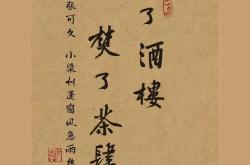 了酒樓
焚了茶肆
張可久 小梁州蓬窗风急雨